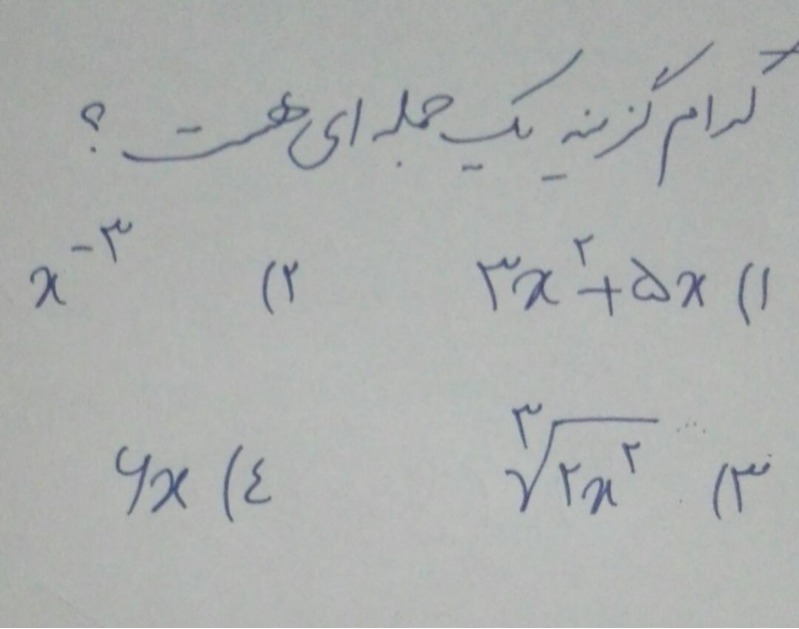 کدام گزینه یک جمله ای هست ؟
۱) ۳x^۲+۵x ۲) x^-۳
۳) ∛۲x^۲ ٤) ۶x